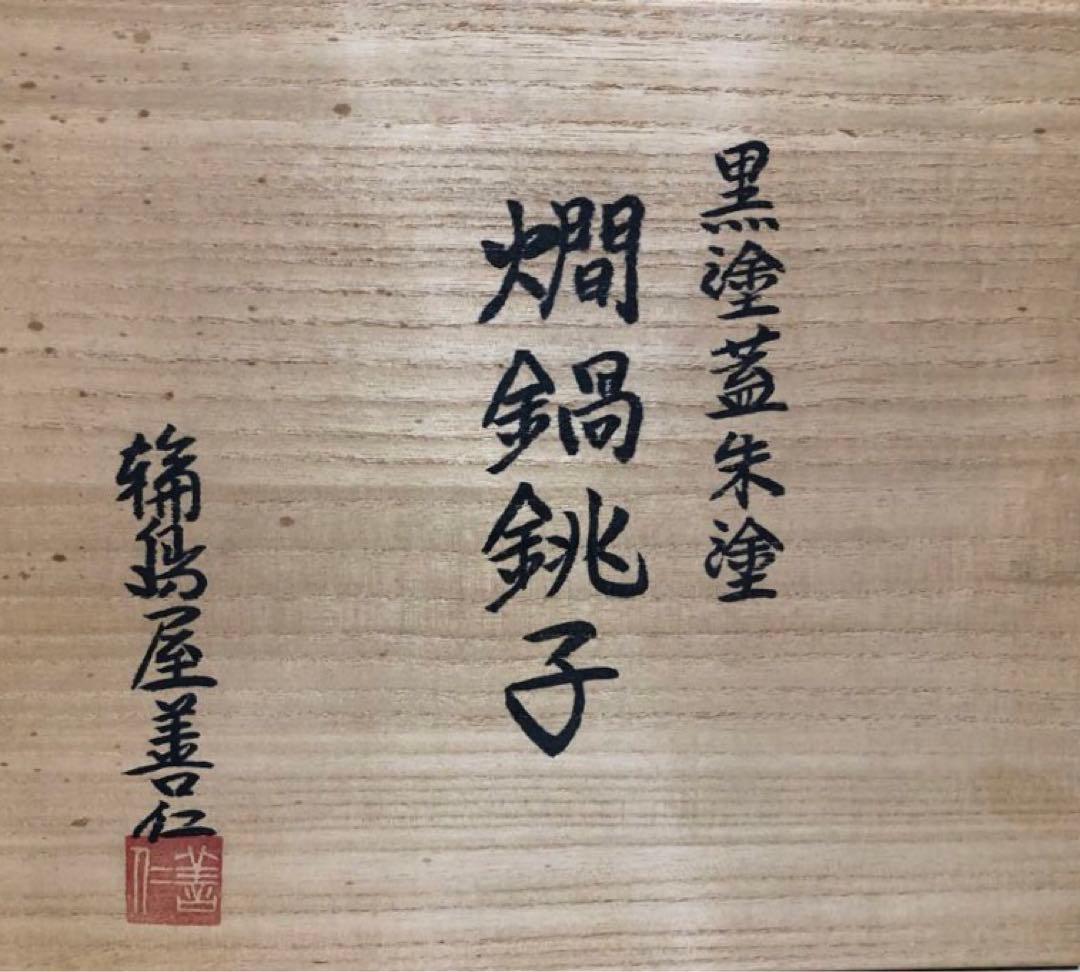 黒塗蓋朱塗
燗鍋銚子
輪島屋善仁
善仁